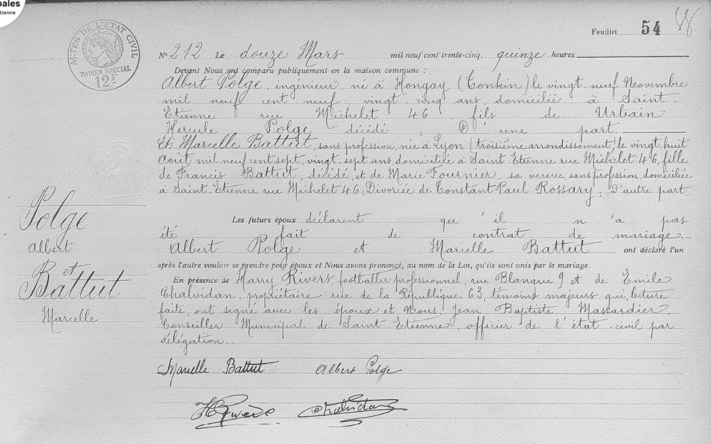 pales
Feuillet 54
ACTES DE L'ETAT CIVIL
PAPIER SPÉCIAL
12 F
N° 212 Le douze Mars mil neuf cent trente-cinq, quinze heures
Devant Nous ont comparu publiquement en la maison commune :
Albert Polge, ingénieur, né à Hongay (Tonkin) le vingt neuf Novembre
mil neuf cent neuf, vingt cinq ans, domicilié à Saint-
Etienne rue Michelet 46, fils de Urbain
Hercule Polge, décédé, D'une part.
Et Marcelle Battut, sans profession, née à Lyon (troisième arrondissement) le vingt huit
Août mil neuf cent sept, vingt sept ans, domiciliée à Saint Etienne rue Michelet 46, fille
de Francis Battut, décédé, et de Marie Fournier, sa veuve sans profession, domiciliée
à Saint Etienne rue Michelet 46, Divorcée de Constant Paul Rossary, D'autre part.
Polge
Albert
et
Battut
Marcelle
Les futurs époux déclarent qu'il n'a pas
été fait de contrat de mariage.
Albert Polge et Marcelle Battut ont déclaré l'un
après l'autre vouloir se prendre pour époux et Nous avons prononcé, au nom de la Loi, qu'ils sont unis par le mariage.
En présence de Hary Rivers, footballer professionnel, rue Blanqui 9 et de Emile
Chalvidan, propriétaire, rue de la République 63, témoins majeurs qui, lecture
faite, ont signé avec les époux et Nous, Jean Baptiste Massardier,
Conseiller Municipal de Saint Etienne, officier de l'état civil par
délégation.
Marcelle Battut Albert Polge
Chalvidan